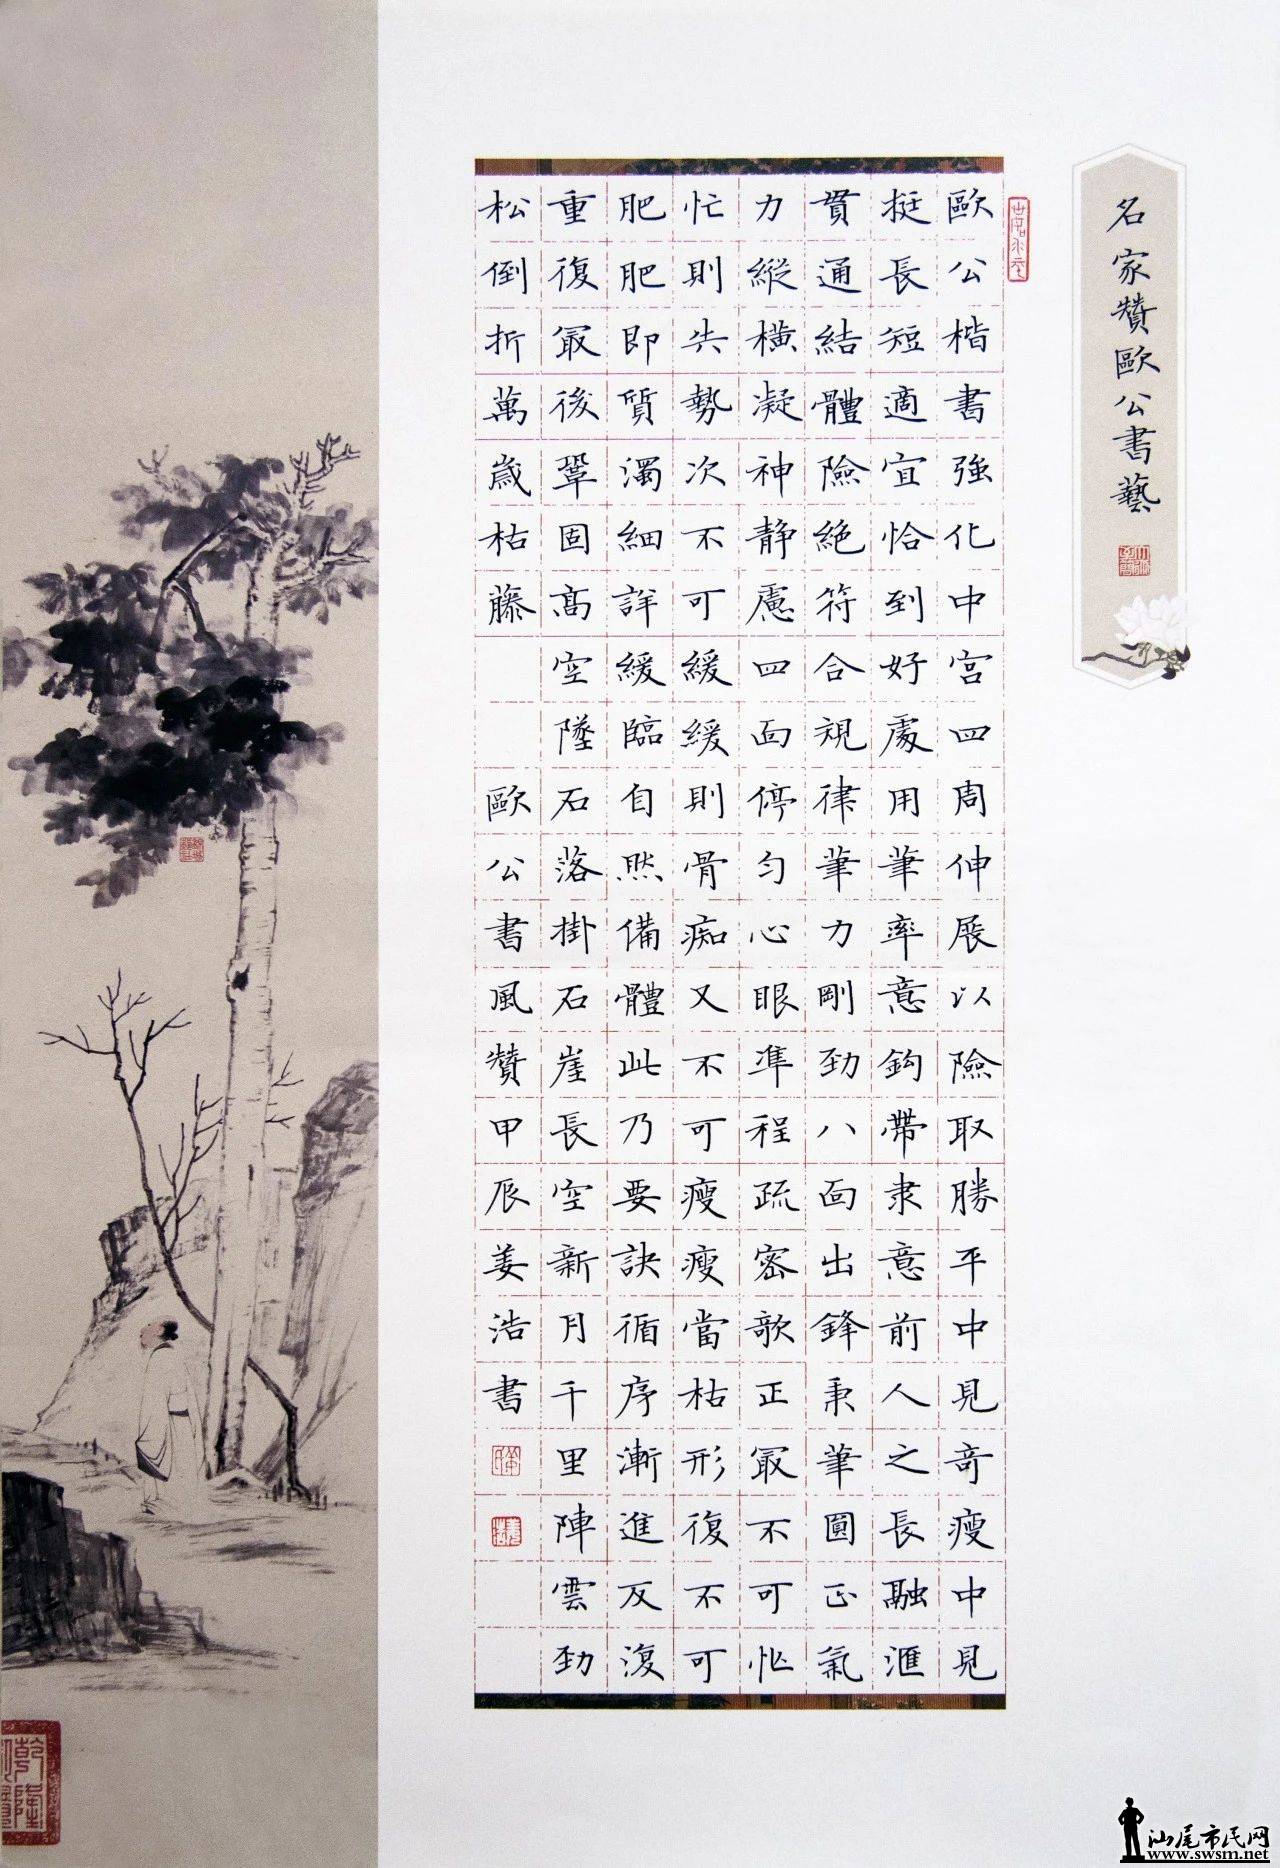 名家贊歐公書藝
歐公楷書強化中宮四周伸展以險取勝平中見奇瘦中見
挺長短適宜恰到好處用筆率意鈎帶隶意前人之長融滙
貫通結體險絶符合規律筆力剛勁八面出鋒秉筆圓正氣
力縱橫凝神静慮四面停勻心眼凖程疏密欹正冣不可忙
忙則失勢次不可緩緩則骨痴又不可瘦瘦當枯形復不可
肥肥即質濁細詳緩臨自然備體此乃要訣循序漸進反復
重復冣後鞏固高空墜石落掛石崖長空新月千里陣雲勁
松倒折萬歲枯藤 歐公書風贊甲辰姜浩書
汕尾市民网
www.swsm.net